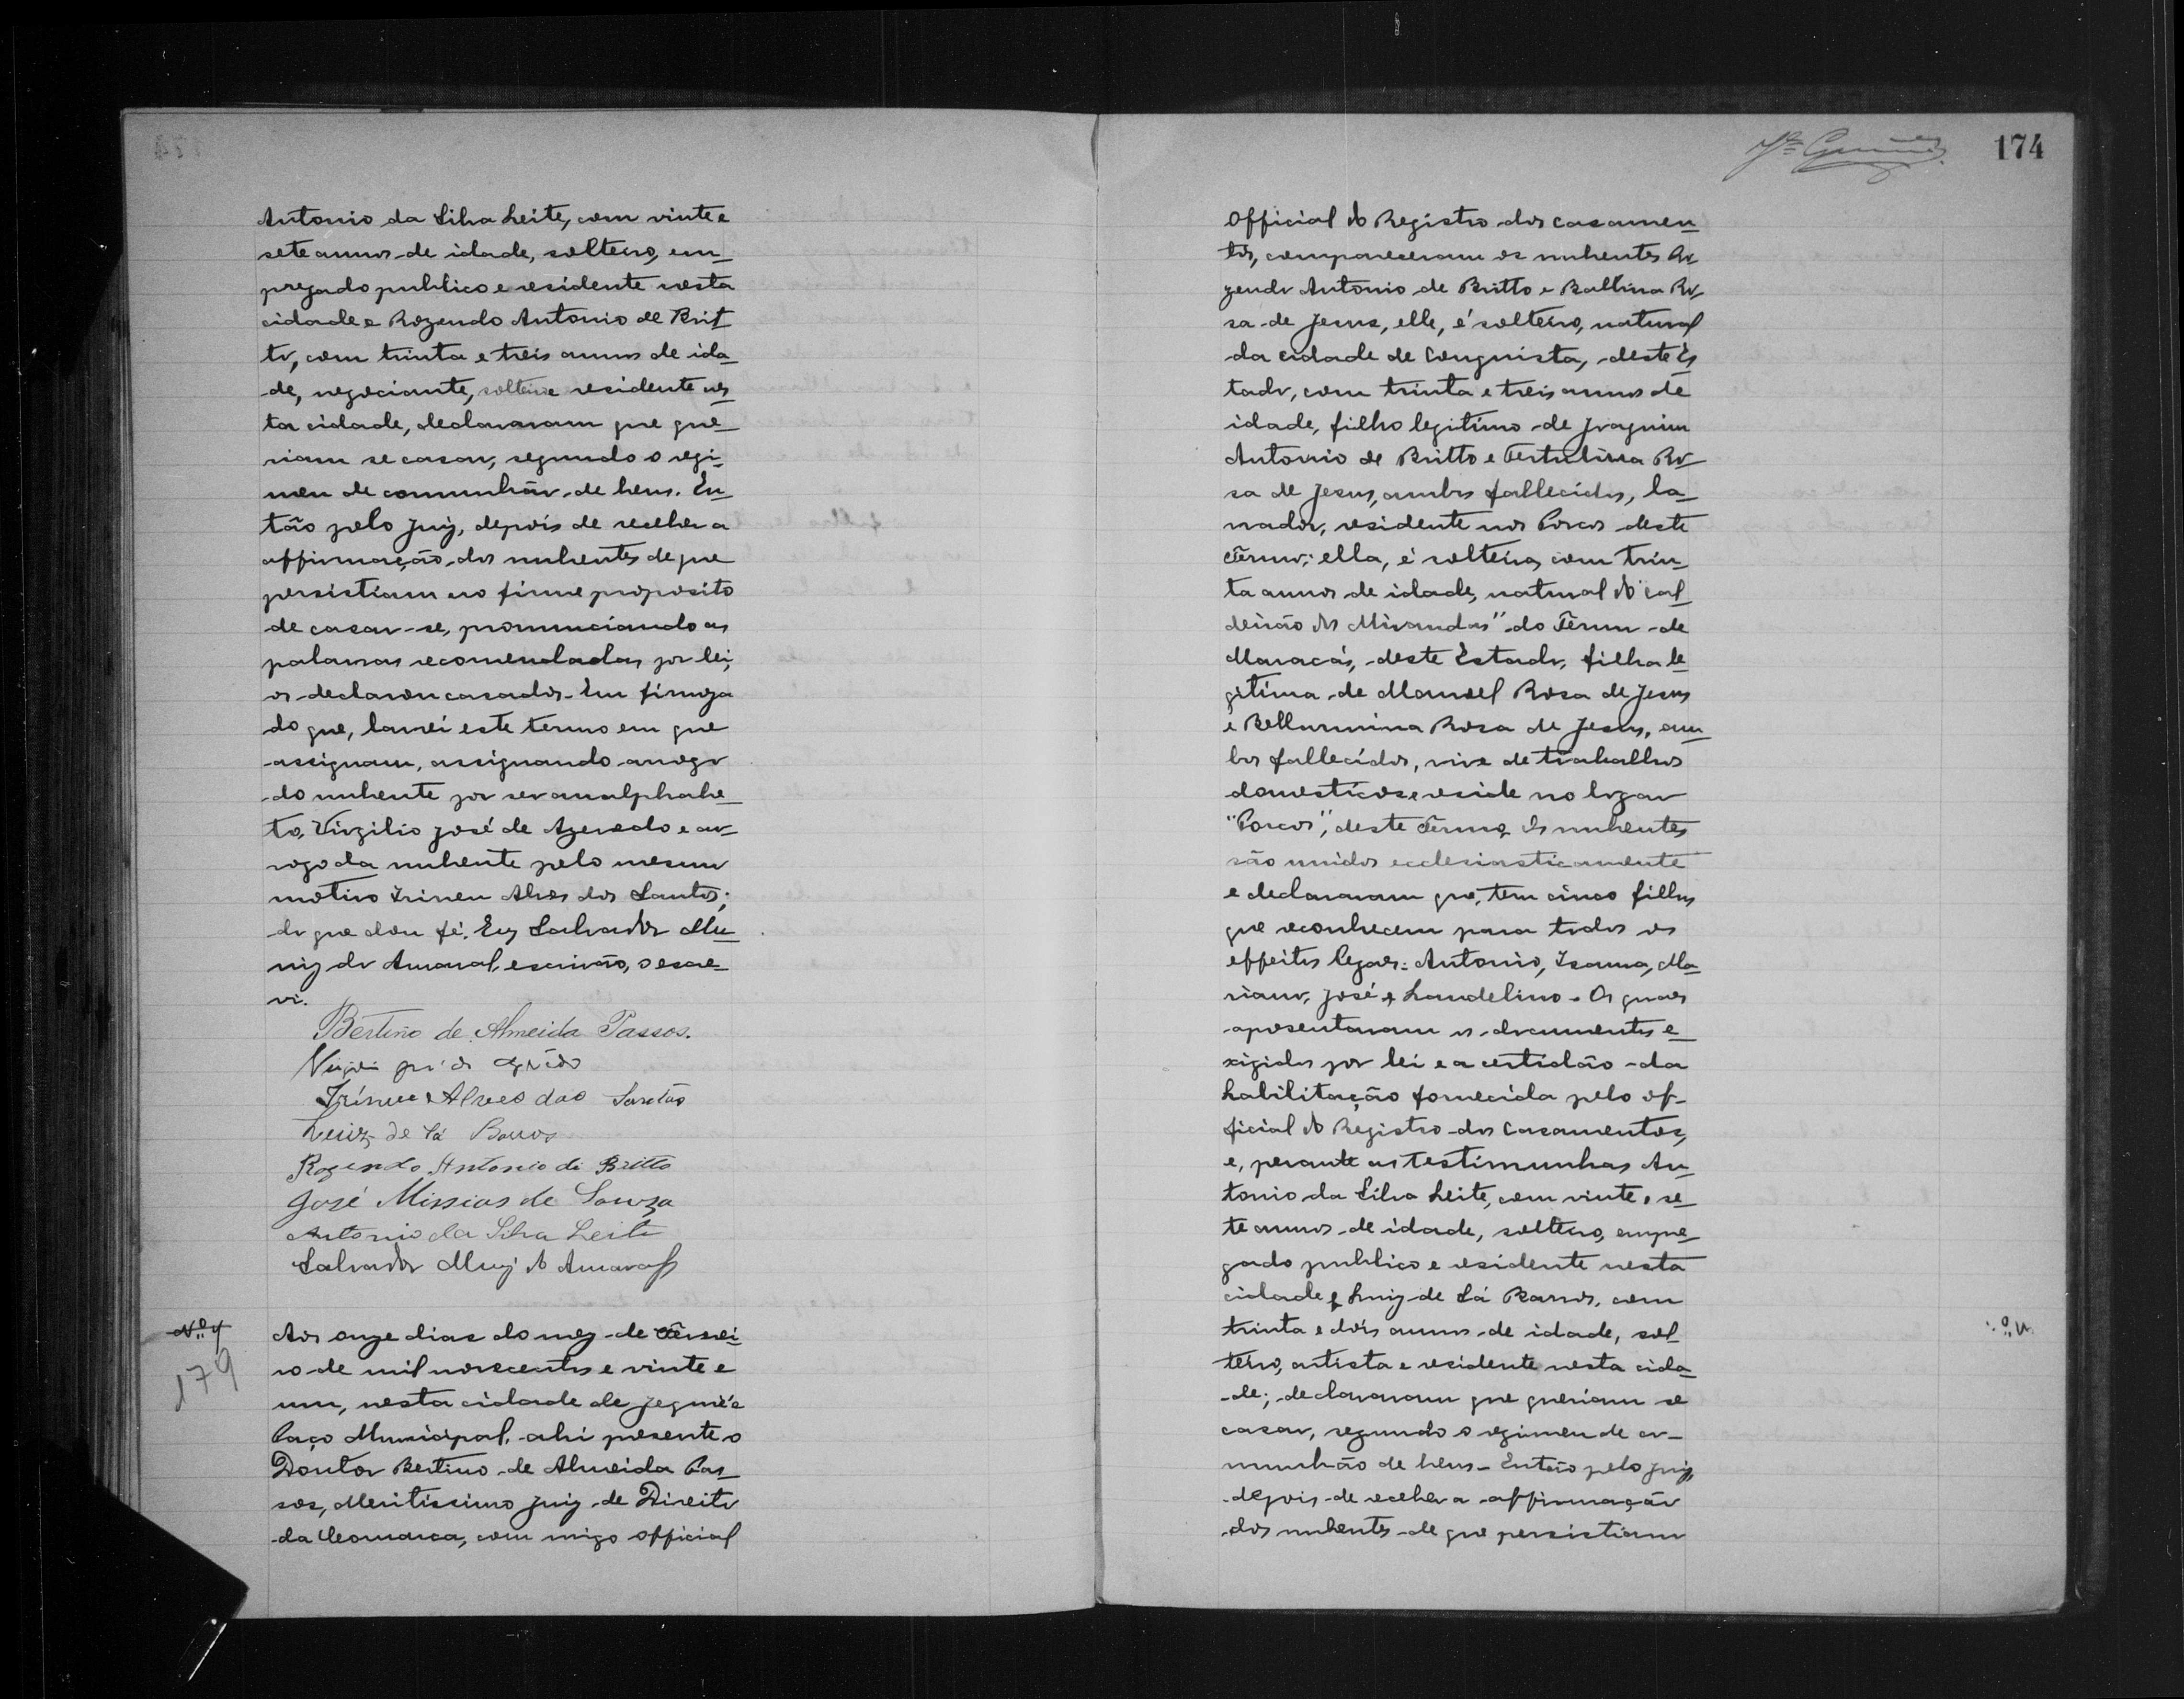 Antonio da Silva Leite, com vinte e
sete annos de idade, solteiro, em_
pregado publico e residente nesta
cidade e Rozendo Antonio de Brit_
to, com trinta e treis annos de ida_
de, negociante, solteiro e residente nes_
ta cidade, declararam que que_
riam se casar, segundo o regi_
men de communhão de bens. En_
tão pelo Juiz, depois de receber a
affirmação dos nubentes de que
persistiam no firme proposito
de casar-se, pronunciando as
palavras recomendadas por lei,
os declarou casados. Em firmeza
do que, lavrei este termo em que
assignam, assignando a rogo
do nubente por ser analphabe_
to, Virgilio José de Azevedo e a
rogo da nubente pelo mesmo
motivo Irineu Alves dos Santos;
do que dou fé. Eu, Salvador Mu_
niz do Amaral, escrivão, o escre_
vi.
Bertino de Almeida Passos.
Irineu Alves dos Santos
Luiz de Sá Barros
Rozendo Antonio de Britto
José Missias de Souza
Antonio da Silva Leite
Salvador Muniz do Amaral
Nº 4
179
Aos onze dias do mez de Fevrei_
ro de mil novecentos e vinte e
um, nesta cidade de Jequié e
Paço Municipal, ahi presente o
Doutor Bertino de Almeida Pas_
sos, Meritissimo Juiz de Direito
da Comarca, com migo official
174
Official do Registro dos casamen_
tos, compareceram os nubentes Ro_
zendo Antonio de Britto e Balbina Ro_
sa de Jesus, elle, é solteiro, natural
da cidade de Conquista, deste Es_
tado, com trinta e treis annos de
idade, filho legitimo de Joaquim
Antonio de Britto e Tertulina Ro_
sa de Jesus, ambos fallecidos, la_
vrador, residente nos Porcos deste
Termo; ella, é solteira, com trin_
ta annos de idade, natural do "Cal_
deirão dos Mirandas" do Termo de
Maracás, deste Estado, filha le_
gitima de Manoel Rosa de Jesus
e Bellarmina Rosa de Jesus, am_
bos fallecidos, vive de trabalhos
domesticos e reside no lugar
"Porcos", deste Termo. Os nubentes
são unidos ecclesiasticamente
e declararam que, tem cinco filhos
que reconhecem para todos os
effeitos legaes: Antonio, Isaura, Ma_
riano, José e Laudelino. Os quaes
apresentaram os documentos e_
xigidos por lei e a certidão da
habilitação fornecida pelo of_
ficial do Registro dos Casamentos,
e, perante as testimunhas An_
tonio da Silva Leite, com vinte e se_
te annos de idade, solteiro, empre_
gado publico e residente nesta
cidade e Luiz de Sá Barros, com
trinta e dois annos de idade, sol_
teiro, artista e residente nesta cida_
de; declararam que queriam se
casar, segundo o regimen de co_
mmunhão de bens. Então pelo Juiz,
depois de receber a affirmação
dos nubentes de que persistiam